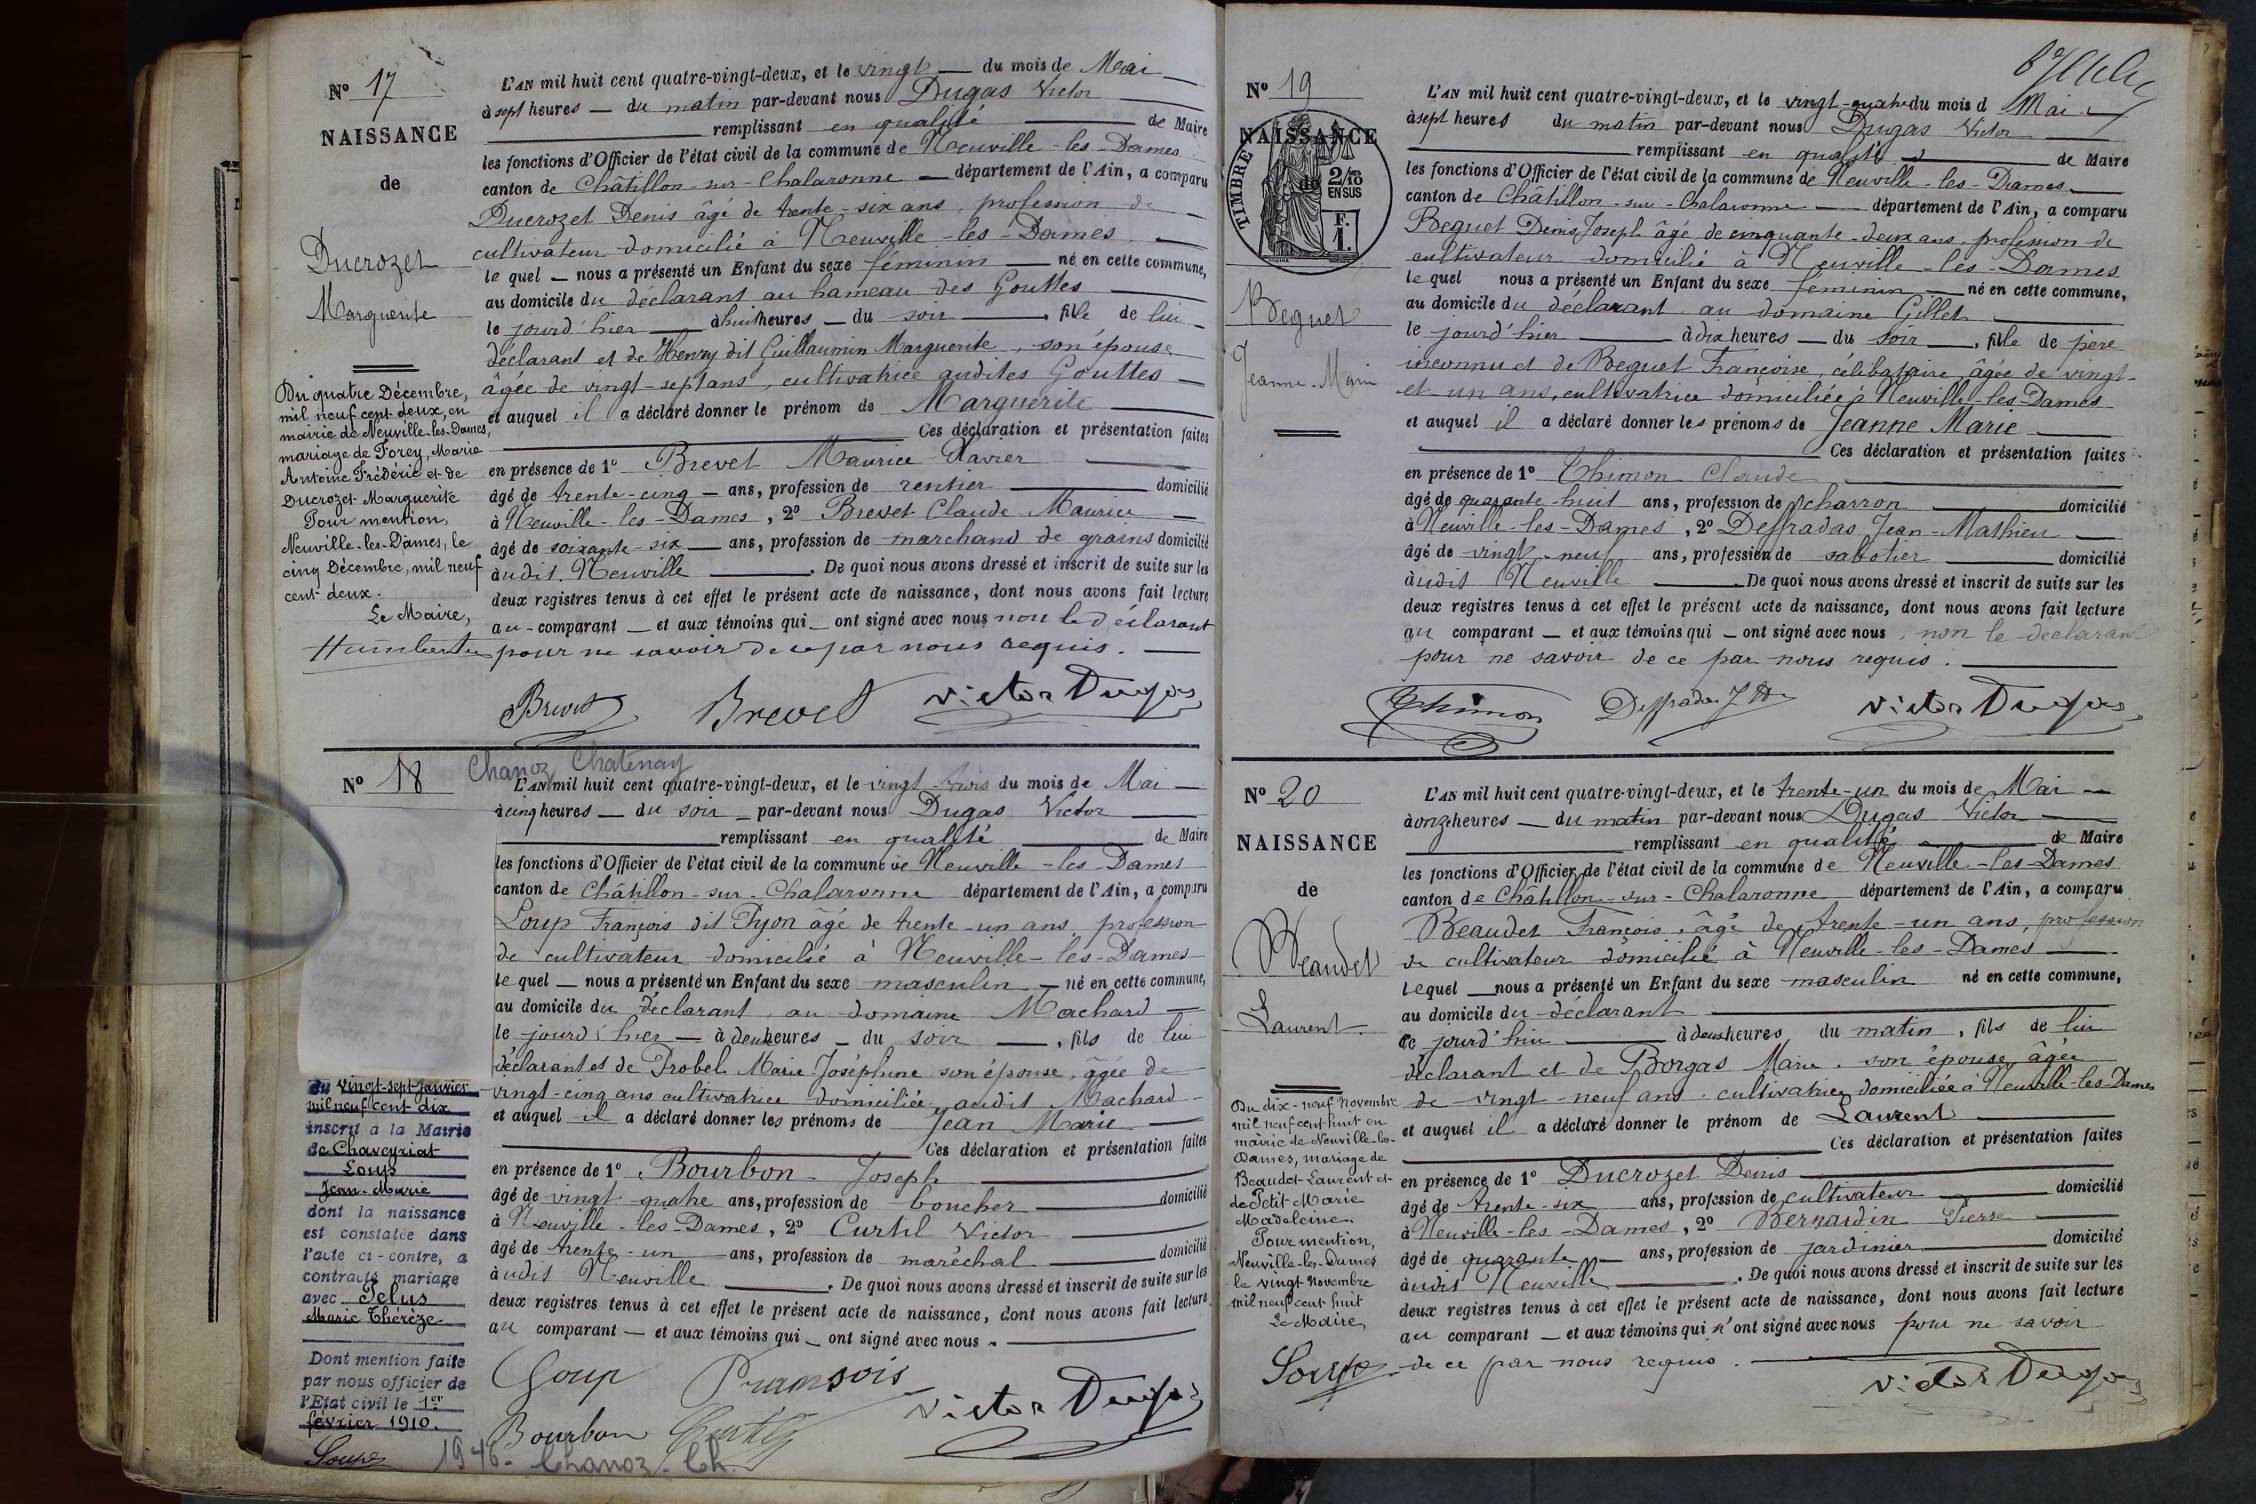 Nº 17
NAISSANCE
de
Ducrozet
Marguerite
Du quatre Décembre,
mil neuf cent deux, en
mairie de Neuville-les-Dames,
mariage de Forey, Marie
Antoine Frédéric et de
Ducrozet Marguerite
Pour mention,
Neuville-les-Dames, le
cinq Décembre, mil neuf
cent deux.
Le Maire,
L'AN mil huit cent quatre-vingt-deux, et le vingt du mois de Mai
à sept heures du matin par-devant nous Dugas Victor
remplissant en qualité de Maire
les fonctions d'Officier de l'état civil de la commune de Neuville-les-Dames
canton de Châtillon-sur-Chalaronne département de l'Ain, a comparu
Ducrozet Denis âgé de trente-six ans, profession de
cultivateur domicilié à Neuville-les-Dames
le quel nous a présenté un Enfant du sexe féminin né en cette commune,
au domicile du déclarant au hameau des Gouttes
le jourd'hier à huit heures du soir, fille de lui
déclarant et de Henry dit Guillaumin Marguerite, son épouse
âgée de vingt-sept ans, cultivatrice audites Gouttes
et auquel il a déclaré donner le prénom de Marguerite
Ces déclaration et présentation faites
en présence de 1º Brevet Maurice Xavier
âgé de trente-cinq ans, profession de rentier domicilié
à Neuville-les-Dames, 2º Brevet Claude Maurice
âgé de soixante-six ans, profession de marchand de grains domicilié
àudit Neuville. De quoi nous avons dressé et inscrit de suite sur les
deux registres tenus à cet effet le présent acte de naissance, dont nous avons fait lecture
au comparant et aux témoins qui ont signé avec nous non le déclarant
pour ne savoir de ce par nous requis.
Brevet Brevet Victor Dugas
Chanoz Chatenay
Nº 18
L'AN mil huit cent quatre-vingt-deux, et le vingt-trois du mois de Mai
à cinq heures du soir par-devant nous Dugas Victor
remplissant en qualité de Maire
les fonctions d'Officier de l'état civil de la commune de Neuville-les-Dames
canton de Châtillon-sur-Chalaronne département de l'Ain, a comparu
Loup François dit Pyon âgé de trente-un ans, profession
de cultivateur domicilié à Neuville-les-Dames
le quel nous a présenté un Enfant du sexe masculin né en cette commune,
au domicile du déclarant, au domaine Machard
le jourd'hier à deux heures du soir, fils de lui
déclarant et de Probel Marie Joséphine son épouse, âgée de
vingt-cinq ans cultivatrice domiciliée audit Machard
et auquel il a déclaré donner les prénoms de Jean Marie
Ces déclaration et présentation faites
en présence de 1º Bourbon Joseph
âgé de vingt-quatre ans, profession de boucher domicilié
à Neuville-les-Dames, 2º Curtil Victor
âgé de trente-un ans, profession de maréchal domicilié
àudit Neuville. De quoi nous avons dressé et inscrit de suite sur les
deux registres tenus à cet effet le présent acte de naissance, dont nous avons fait lecture
au comparant et aux témoins qui ont signé avec nous.
Loup François
Bourbon Curtil Victor Dugas
1946. Chanoz. Ch.
du vingt-sept janvier
mil neuf cent dix
inscrit à la Mairie
de Chaveyriat
Loup
Jean-Marie
dont la naissance
est constatée dans
l'acte ci-contre, a
contracté mariage
avec Pelus
Marie Thérèze
Dont mention faite
par nous officier de
l'Etat civil le 1er
février 1910.
Nº 19
NAISSANCE
de
TIMBRE
2/10
EN SUS
F.
1.
Beguet
Jeanne-Marie
L'AN mil huit cent quatre-vingt-deux, et le vingt-quatre du mois d Mai
à sept heures du matin par-devant nous Dugas Victor
remplissant en qualité de Maire
les fonctions d'Officier de l'état civil de la commune de Neuville-les-Dames
canton de Châtillon-sur-Chalaronne département de l'Ain, a comparu
Beguet Denis Joseph âgé de cinquante-deux ans, profession de
cultivateur domicilié à Neuville-les-Dames
le quel nous a présenté un Enfant du sexe féminin né en cette commune,
au domicile du déclarant au domaine Gillet
le jourd'hier à dix heures du soir, fille de père
inconnu et de Beguet Françoise, célibataire, âgée de vingt-
et-un ans, cultivatrice domiciliée à Neuville-les-Dames
et auquel il a déclaré donner les prénoms de Jeanne Marie
Ces déclaration et présentation faites
en présence de 1º Thimon Claude
âgé de quarante-huit ans, profession de charron domicilié
à Neuville-les-Dames, 2º Desfradas Jean-Mathieu
âgé de vingt-neuf ans, profession de sabotier domicilié
àudit Neuville. De quoi nous avons dressé et inscrit de suite sur les
deux registres tenus à cet effet le présent acte de naissance, dont nous avons fait lecture
au comparant et aux témoins qui ont signé avec nous, non le déclarant
pour ne savoir de ce par nous requis.
Thimon Victor Dugas
Nº 20
NAISSANCE
de
Beaudet
Laurent
Du dix-neuf Novembre
mil neuf cent huit en
mairie de Neuville-les-
Dames, mariage de
Beaudet Laurent et
de Petit Marie
Madeleine.
Pour mention,
Neuville-les-Dames
le vingt Novembre
mil neuf cent huit
Le Maire,
L'AN mil huit cent quatre-vingt-deux, et le trente-un du mois de Mai
à onze heures du matin par-devant nous Dugas Victor
remplissant en qualité de Maire
les fonctions d'Officier de l'état civil de la commune de Neuville-les-Dames
canton de Châtillon-sur-Chalaronne département de l'Ain, a comparu
Beaudet François, âgé de trente-un ans, profession
de cultivateur domicilié à Neuville-les-Dames
lequel nous a présenté un Enfant du sexe masculin né en cette commune,
au domicile du déclarant
ce jourd'hui à deux heures du matin, fils de lui
déclarant et de Borgas Marie, son épouse, âgée
de vingt-neuf ans, cultivatrice domiciliée à Neuville-les-Dames
et auquel il a déclaré donner le prénom de Laurent
Ces déclaration et présentation faites
en présence de 1º Ducrozet Denis
âgé de trente-six ans, profession de cultivateur domicilié
à Neuville-les-Dames, 2º Bernardin Pierre
âgé de quarante ans, profession de jardinier domicilié
àudit Neuville. De quoi nous avons dressé et inscrit de suite sur les
deux registres tenus à cet effet le présent acte de naissance, dont nous avons fait lecture
au comparant et aux témoins qui n'ont signé avec nous pour ne savoir
de ce par nous requis.
Victor Dugas